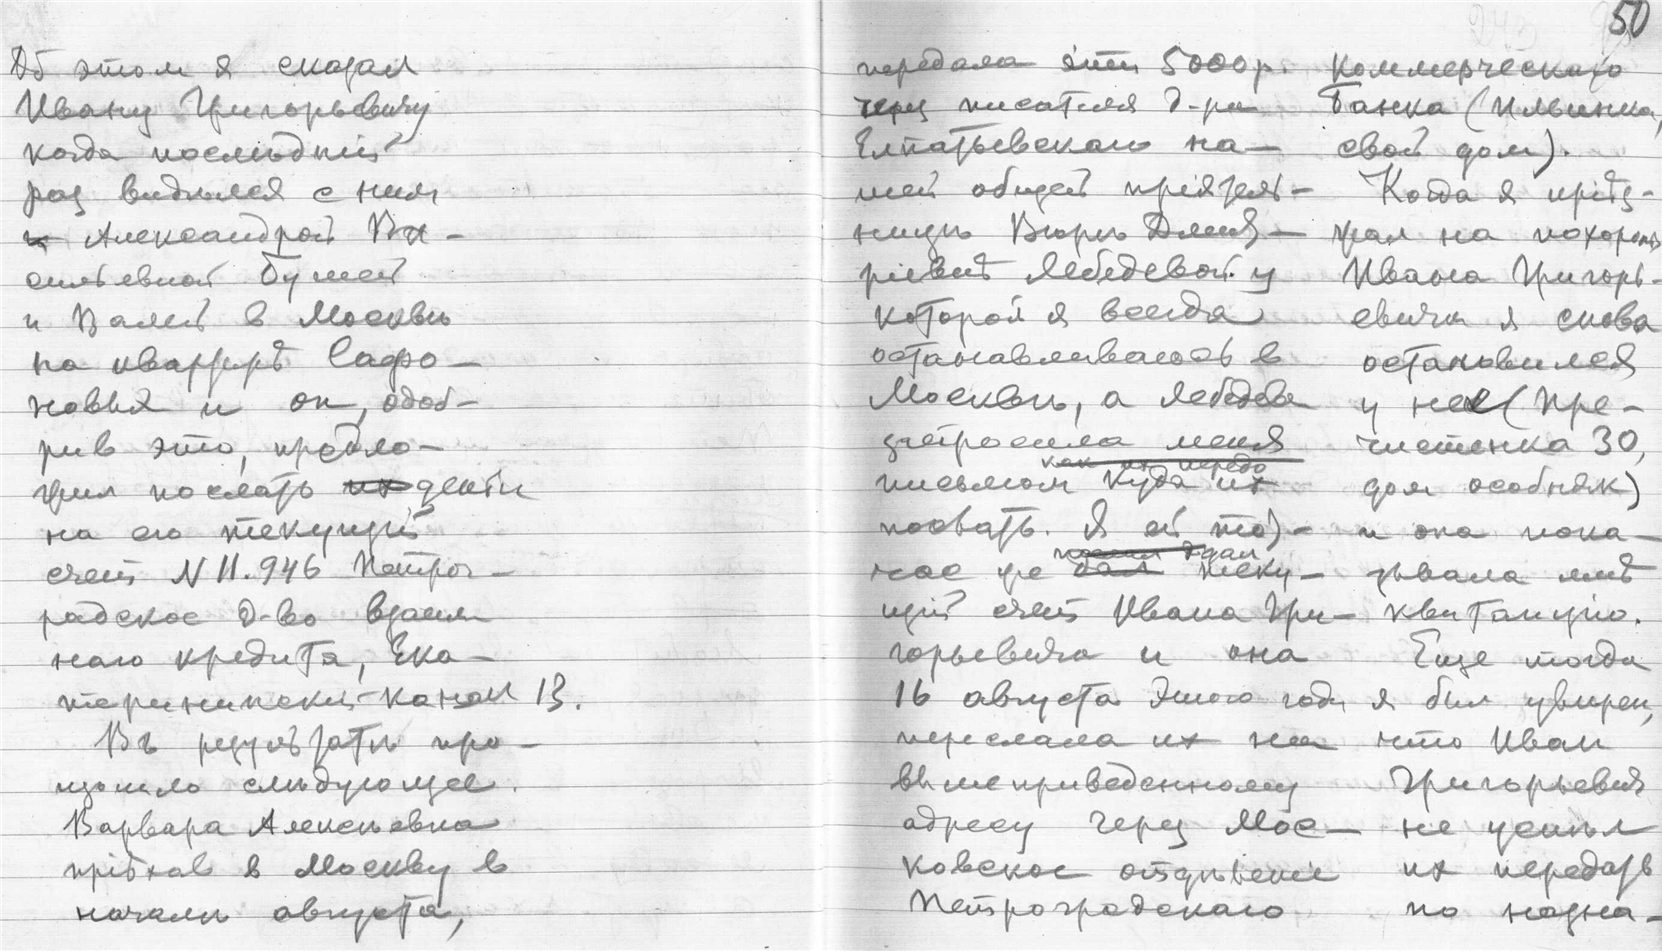 50
Об этом я сказал
Ивану Григорьевичу
когда последний
раз виделся с ним
и Александрой Ва-
сильевной
и Валей в Москвѣ
на квартирѣ Сафо-
новых и он, одоб-
рив это, предло-
жил послать их деньги
на его текущій
счет N 11.946 Петрог-
радское О-во взаим
наго кредита, Ека-
терининскій-канал 13.
Въ результатѣ про-
изошло слѣдующее.
Варвара Алексѣевна
пріѣхав в Москву в
началѣ августа,
передала эти 5000 р.
через писателя д-ра
Елпатьевскаго на-
шей общей пріятель-
ницѣ Вѣрѣ Дмит-
ріевнѣ Лебедевой у
которой я всегда
останавливаюсь в
Москвѣ, а Лебедева
запросила меня
как их передо
письмом куда их
послать. Я ей тот-
послал дал
час же дал теку-
щій счет Ивана Гри-
горьевича и она
16 августа этого года
переслала их на
вышеприведенному
адресу через Мос-
ковское отдѣленіе
Петроградскаго
Коммерческаго
Банка (Ильинка,
свой дом).
Когда я пріѣз-
жал на похороны
Ивана Григорь-
евича я снова
остановился
у нее (Пре-
чистенка 30,
дом особняк)
и она пока-
зывала мнѣ
квитанцію.
Еще тогда
я был увѣрен,
что Иван
Григорьевич
не успѣл
их передать
по назна-